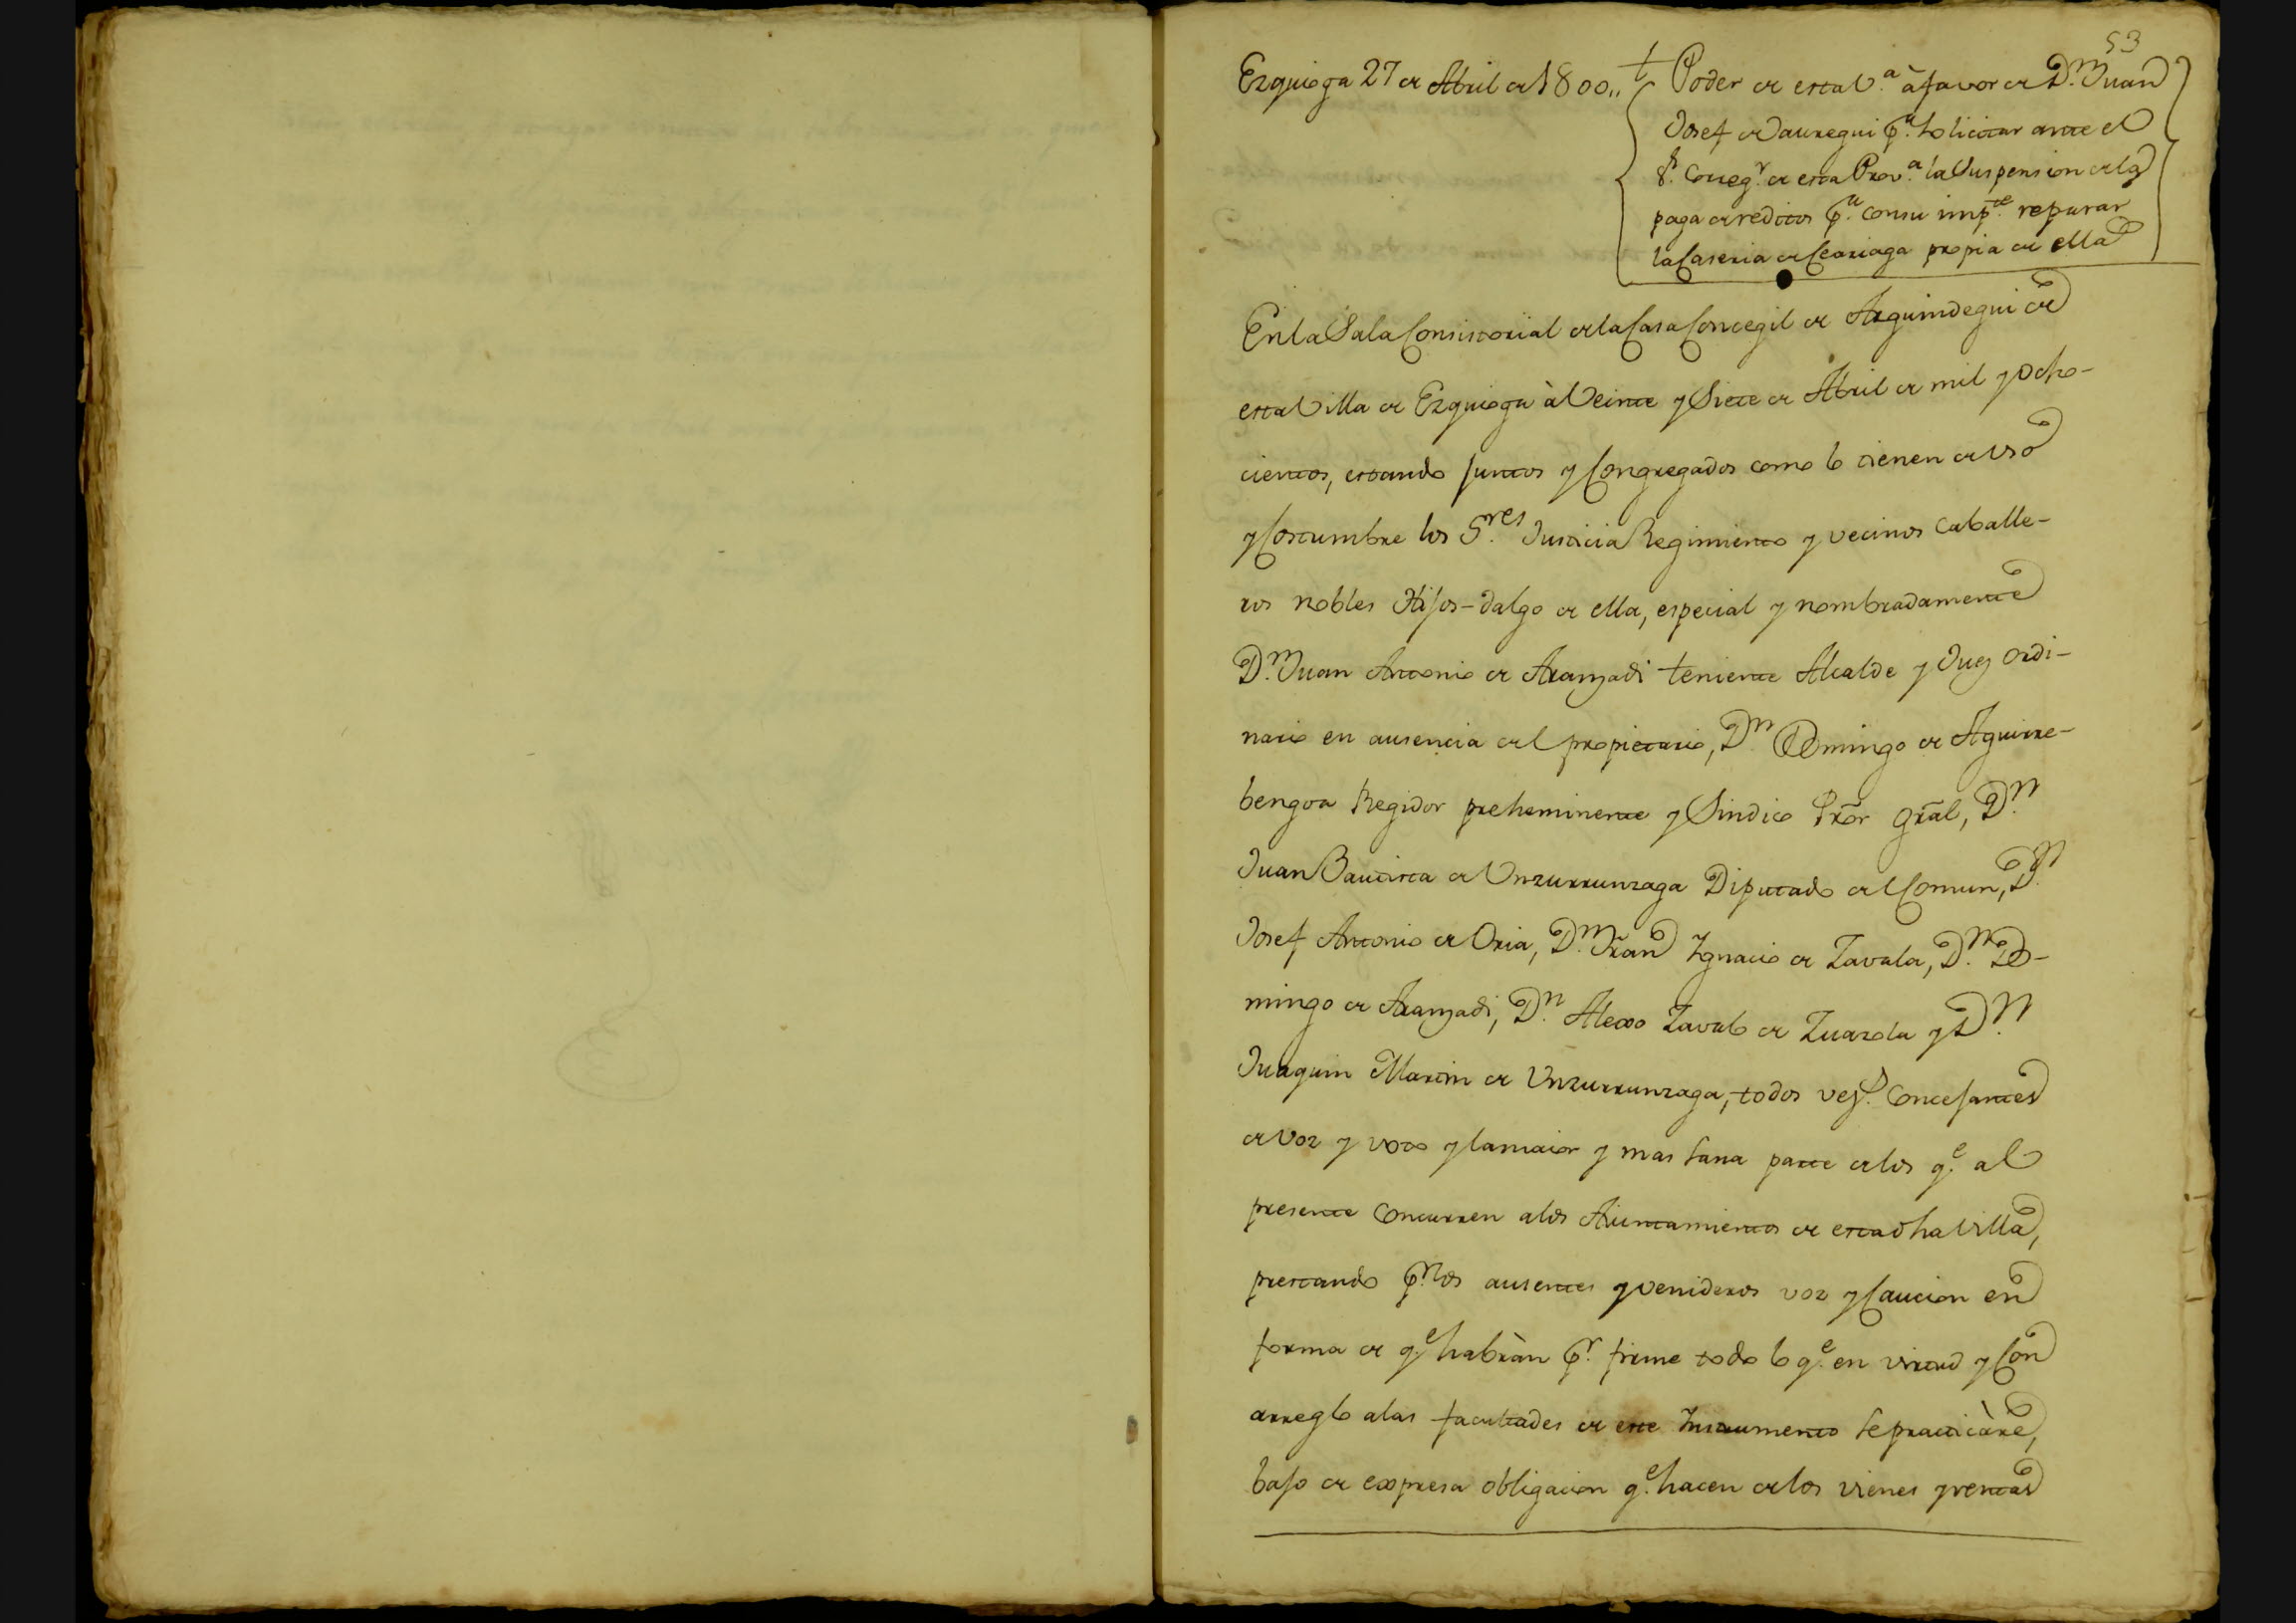 53
Ezquioga 27 de Abril de 1800,, + Poder de esta V.ª à favor de D.n Juan
Josef de Jauregui p.ª solicitar ante el
S.r Correg.r de esta Prov.ª la suspension de la
paga de reditos p.ª con su imp.te reparar
la Caseria de Leariaga propia de ella
En la Sala Consistorial de la Casa Concegil de Arguindegui de
esta Villa de Ezquioga à Veinte y Siete de Abril de mil y ocho-
cientos, estando juntos y Congregados como lo tienen de uso
y Costumbre los S.res Justicia Regimiento y vecinos Caballe-
ros nobles Hijos-dalgo de ella, especial y nombradamente
D.n Juan Antonio de Aranzadi teniente Alcalde y Juez ordi-
nario en ausencia del propietario, D.n Domingo de Aguirre-
bengoa Regidor preheminente y Sindico Pror gral, D.n
Juan Bautista de Unzurrunzaga Diputado del Comun, D.n
Josef Antonio de Oria, D.n Fran Ygnacio de Zavala, D.n Do-
mingo de Aranzadi, D.n Alexo Zavalo de Zuazola y D.n
Juaquin Martin de Unzurrunzaga, todos vez.s Concejantes
de voz y voto y la maior y mas sana parte de los q.e al
presente Concurren a los Aiuntamientos de esta dha Villa,
prestando p.r los ausentes y venideros voz y Caucion en
forma de q.e habràn p.r firme todo lo q.e en virtud y Con
arreglo a las facultades de este Instrumento se practicàre,
bajo de expresa obligacion q.e hacen de los vienes y rentas